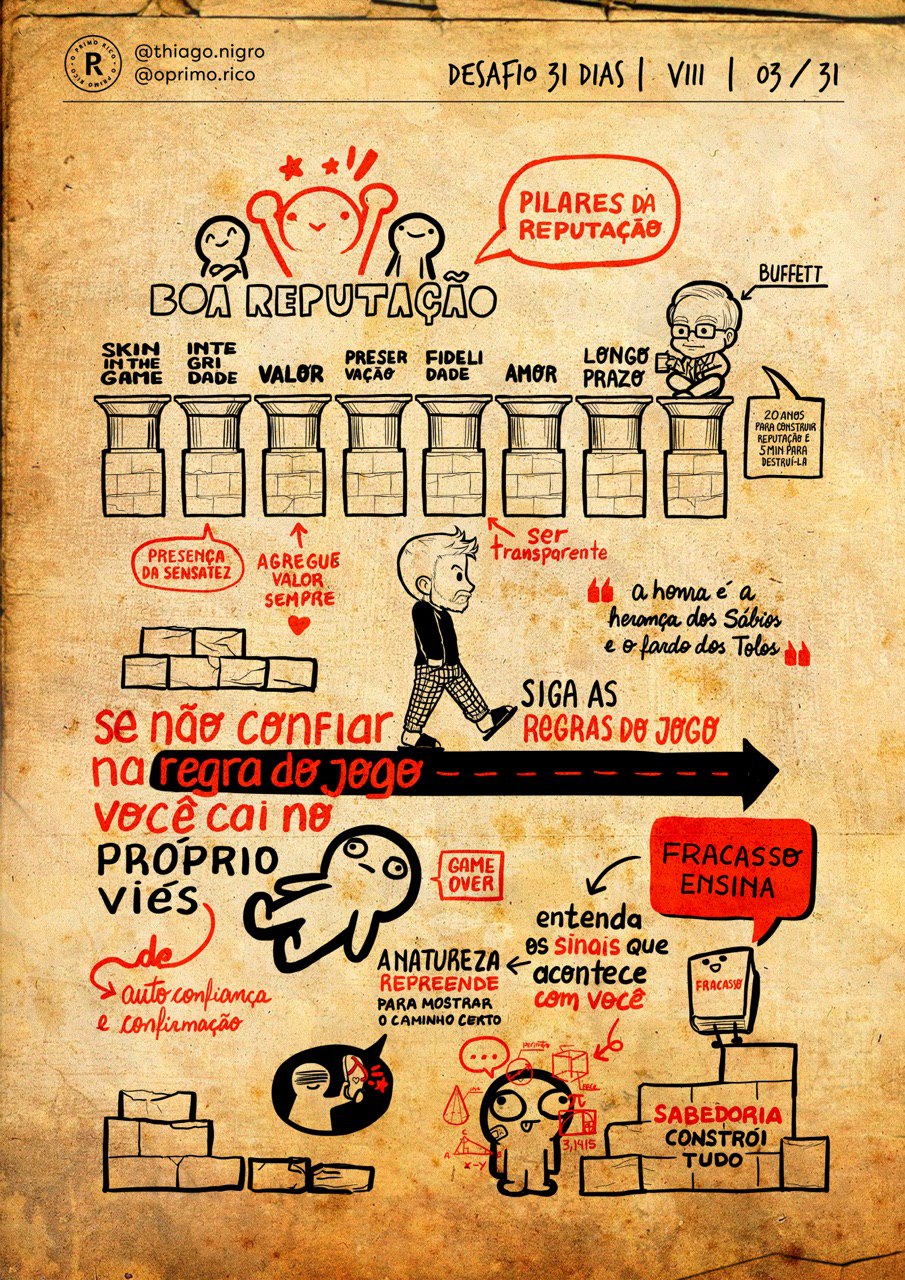 O PRIMO RICO • O PRIMO RICO •
R
@thiago.nigro
@oprimo.rico
DESAFIO 31 DIAS | VIII | 03 / 31
PILARES DA
REPUTAÇÃO
BUFFETT
BOA REPUTAÇÃO
SKIN
IN THE
GAME
INTE
GRI
DADE
VALOR
PRESER
VAÇÃO
FIDELI
DADE
AMOR
LONGO
PRAZO
20 ANOS
PARA CONSTRUIR
REPUTAÇÃO E
5 MIN PARA
DESTRUÍ-LA
PRESENÇA
DA SENSATEZ
AGREGUE
VALOR
SEMPRE
ser
transparente
"a honra é a
herança dos Sábios
e o fardo dos Tolos"
SIGA AS
REGRAS DO JOGO
se não confiar
na regra do jogo
você cai no
PRÓPRIO
viés
de
auto confiança
e confirmação
GAME
OVER
FRACASSO
ENSINA
entenda
os sinais que
acontece
com você
A NATUREZA
REPREENDE
PARA MOSTRAR
O CAMINHO CERTO
FRACASSO
π
3,1415
A
B
C
x-y
SABEDORIA
CONSTRÓI
TUDO